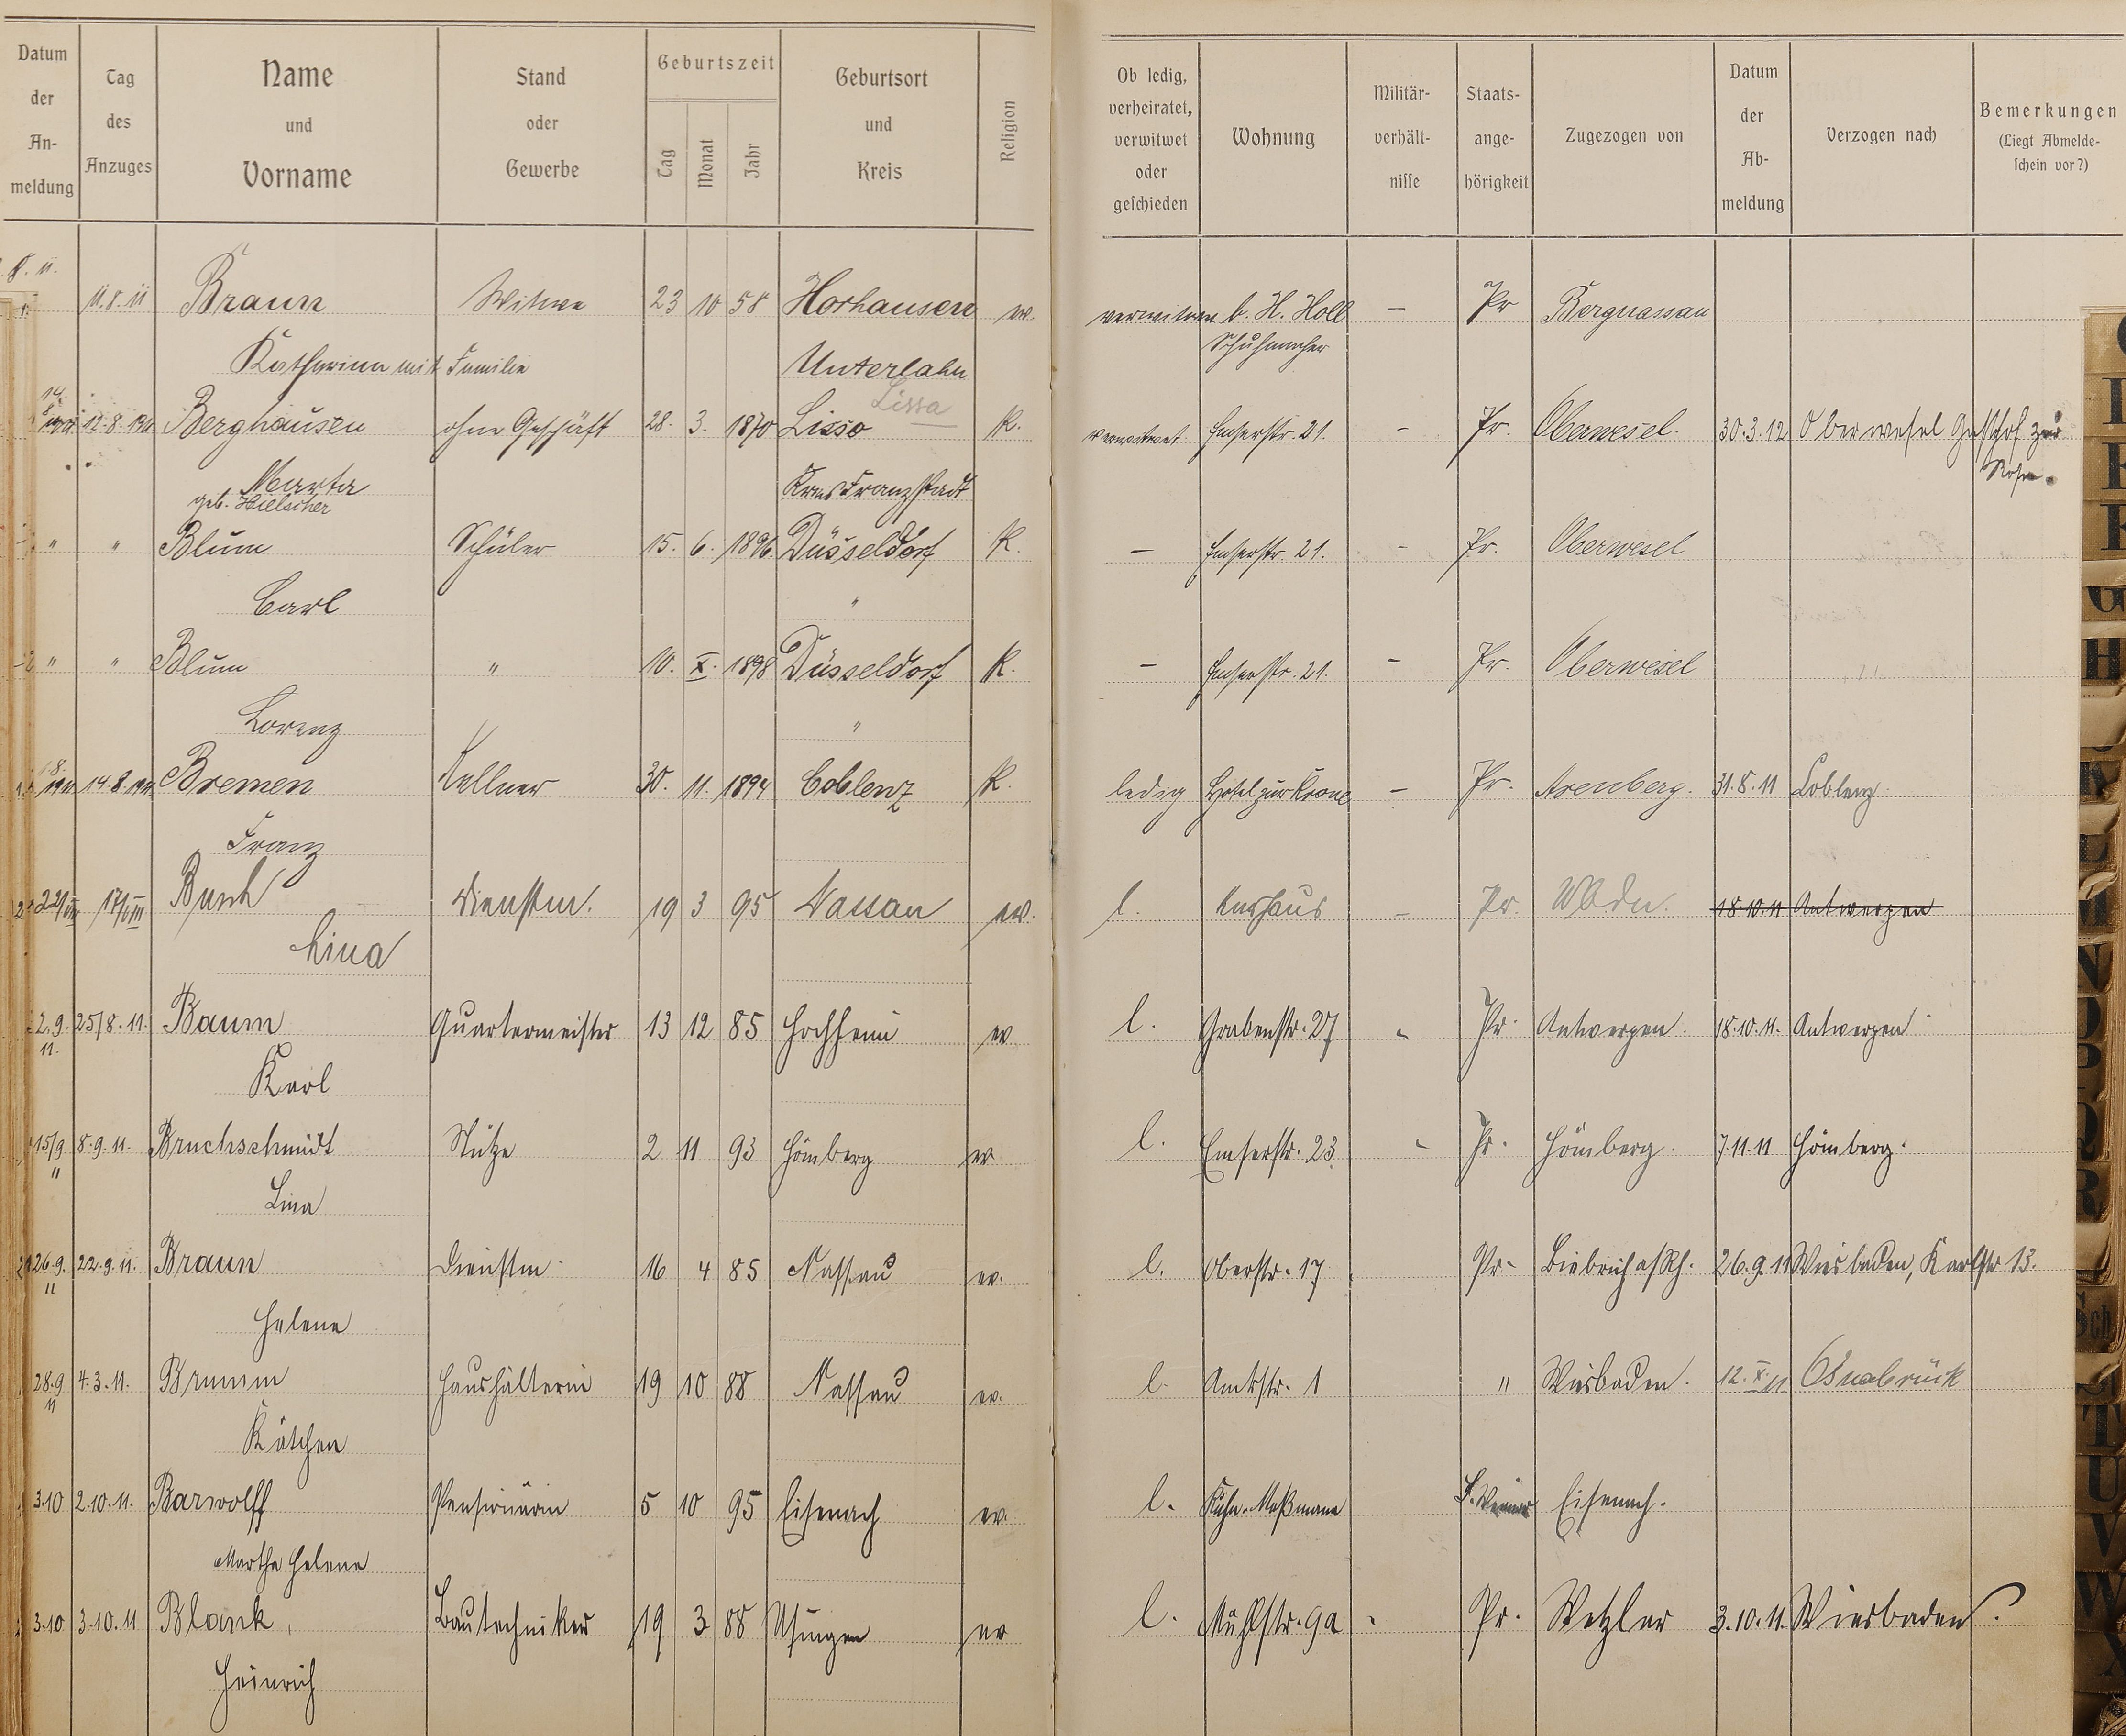 Datum der Anmeldung | Tag des Anzuges | Name und Vorname | Stand oder Gewerbe | Geburtszeit Tag Monat Jahr | Geburtsort und Kreis | Religion | Ob ledig, verheiratet, verwitwet oder geschieden | Wohnung | Militärverhältnisse | Staatsangehörigkeit | Zugezogen von | Datum der Abmeldung | Verzogen nach | Bemerkungen (Liegt Abmeldeschein vor?)
8. 11.
11.8.11 Braun Witwe 23 10 58 Horhausen ev. b. H. Holl – Pr Bergnassau
Katharina mit Familie Unterlahn Schuhmacher
Lissa
12.8. Berghausen ohne Geschäft 28. 3. 1870 Lisso K. Emserstr. 21. – Pr. Oberwesel. 30.3.12 Oberwesel Gasthof zur
Marta Kreis Franzstadt Rose.
geb. Hielscher
" " Blum Schüler 15. 6. 1896. Düsseldorf K. – Emserstr. 21. – Pr. Oberwesel
Carl "
" " Blum " 10. X. 1898 Düsseldorf K. – Emserstr. 21. – Pr. Oberwesel
Lorenz "
14.8. Bremen Kellner 30. 11. 1894 Coblenz K. ledig Hotel zur Krone – Pr. Arenberg. 31.8.11 Coblenz
Franz
22/VIII 17/VIII Busch Dienstm. 19 3 95 Nassau ev. l. Kurhaus – Pr. Wbdn. 18.10.11 Antwerpen
Lina
2.9. 25/8.11. Baum Quartermeister 13 12 85 Hochheim ev. l. Grabenstr. 27 Pr. Antwerpen. 18.10.11. Antwerpen
11. Karl
15/9 8.9.11. Bruchschmidt Stütze 2 11 93 Hömberg ev l. Emserstr. 23. Pr. Hömberg. 7.11.11 Hömberg.
11 Lina
26.9. 22.9.11. Braun Dienstm. 16 4 85 Nassau ev. l. Oberstr. 17 Pr. Biebrich a/Rh. 26.9.11 Wiesbaden, Karlstr 13.
11 Helene
28.9 4.3.11. Brumm Haushälterin 19 10 88 Nassau ev. l. Amtstr. 1 " Wiesbaden. 12.X.11 Osnabrück
11 Kätchen
3.10 2.10.11. Barwolff Pensionärin 5 10 95 Eisenach ev. l. Eisenach.
Martha Helene
3.10 3.10.11 Blank, Bautechniker 19 3 88 Usingen ev l. Mühlstr. 9a Pr. Wetzlar 3.10.11. Wiesbaden.
Heinrich
G
H
L
M
N
O
P
Q
R
Sch
T
U
V
W
X